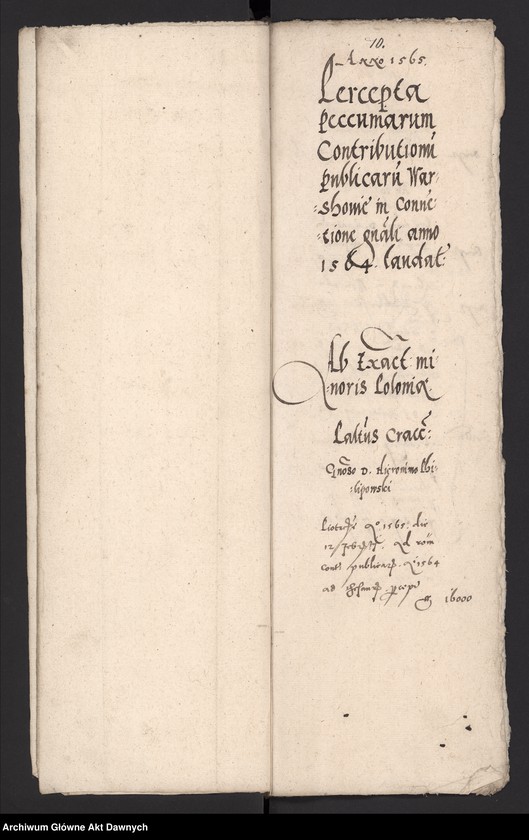 10.
Anno 1565.
Percepta
peccumarum
Contributionũ
publicarũ War-
shoviẽ in Convẽ
-tione gnãli anno
1564. laudat:
Ab Exact: mi-
-noris Poloniæ
Paltũs Cracc̃:
Gnõso D. Hieronimo Phi-
-lipowski
Ao 1565. die
12 ad
cont: publicarũ. Ao 1564
ad
16000
Archiwum Główne Akt Dawnych